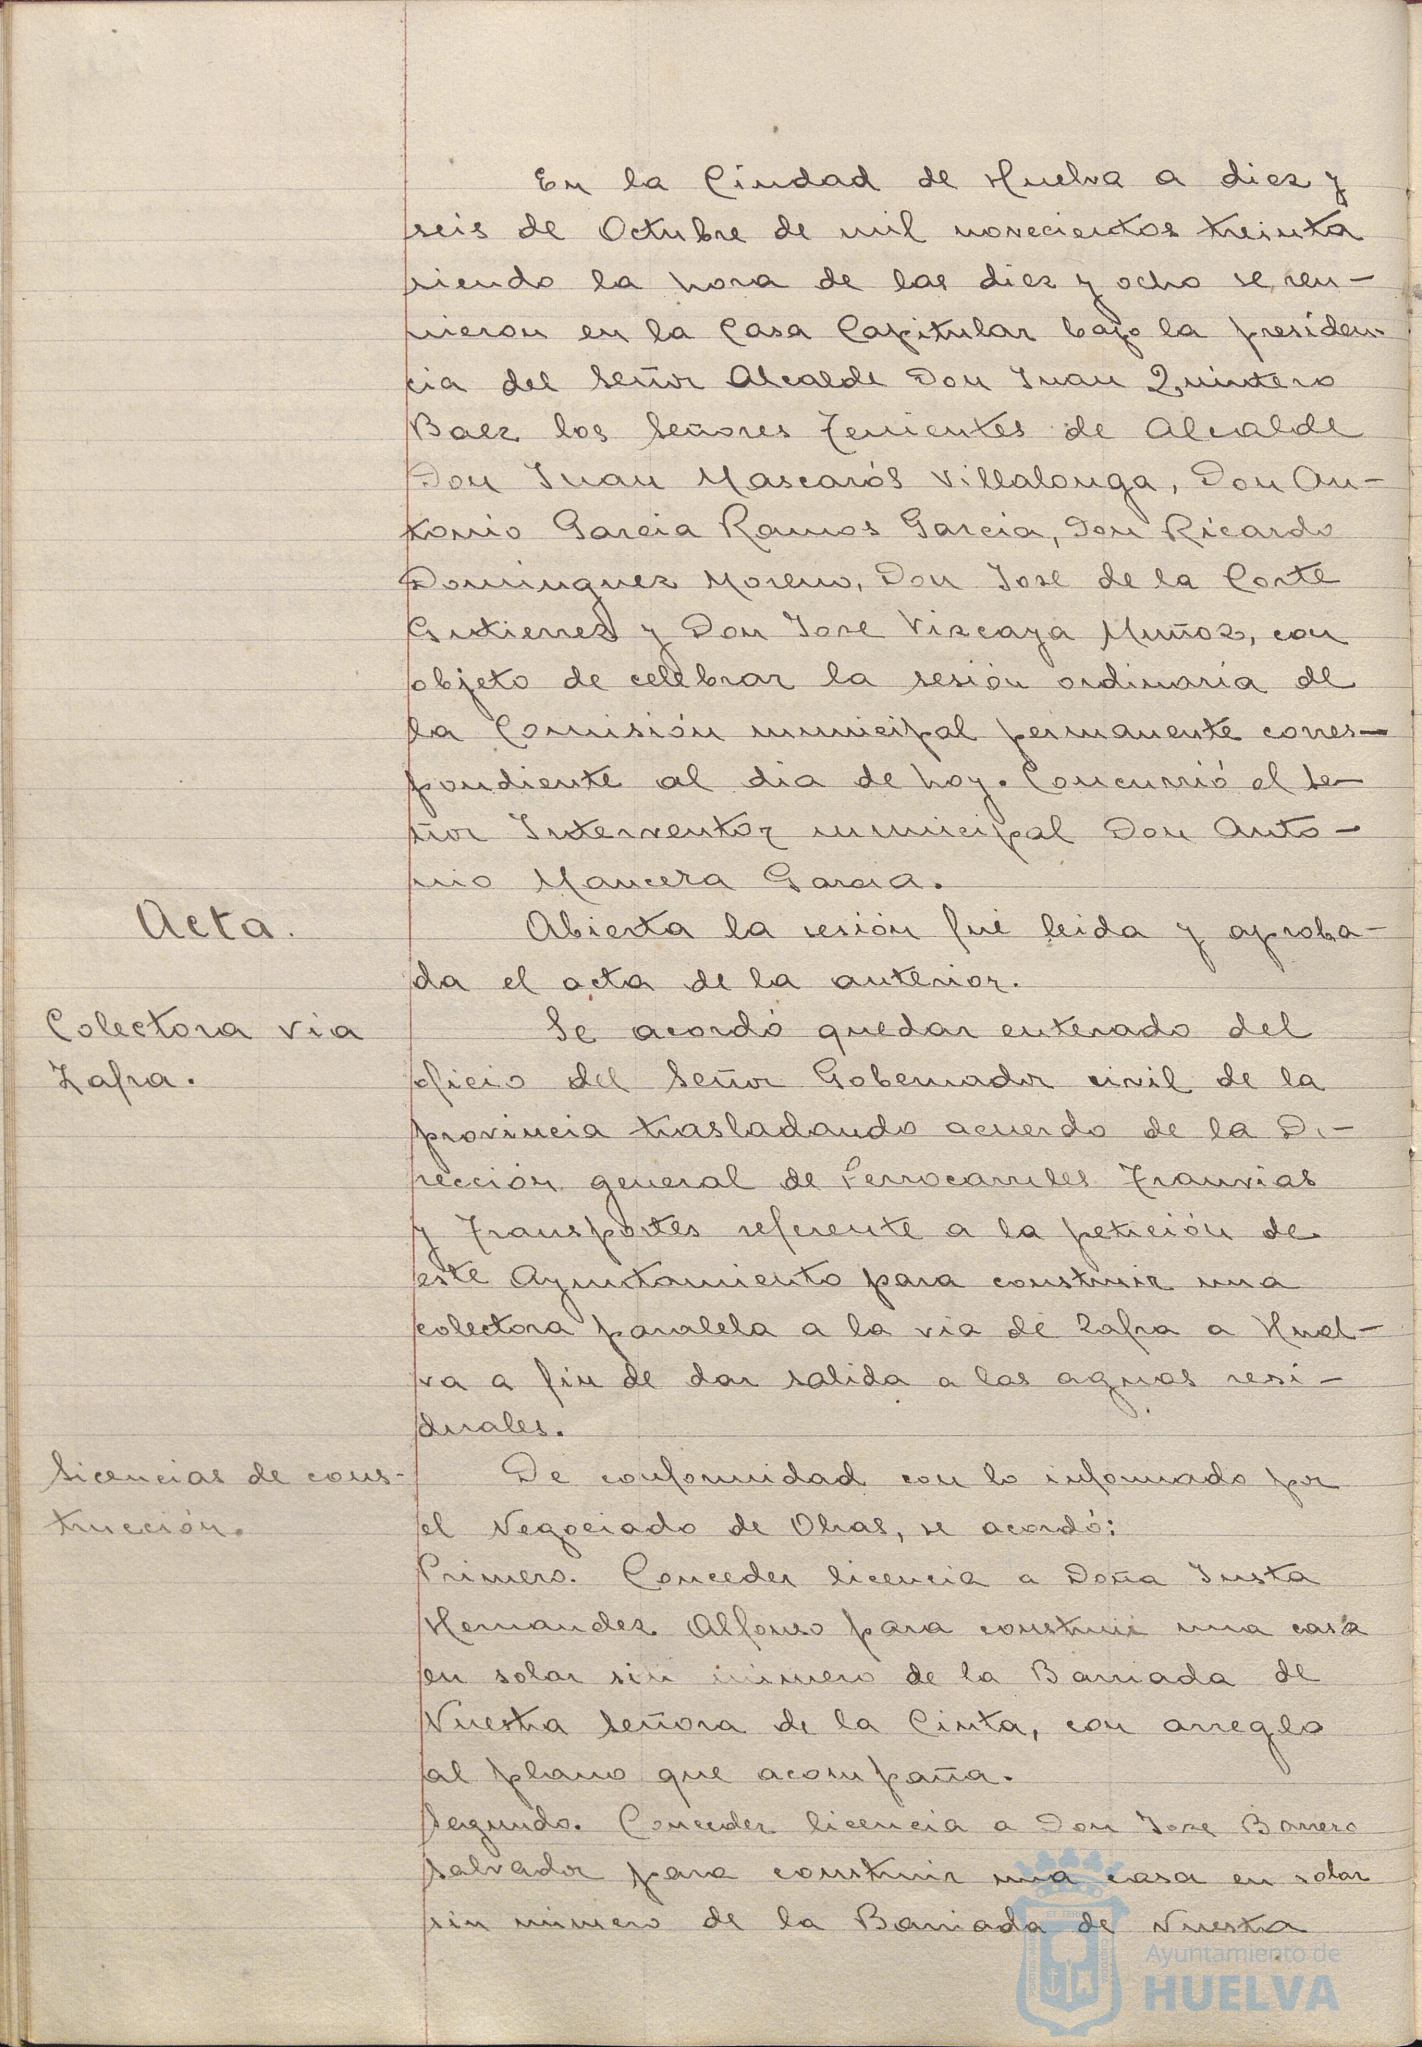 En la Ciudad de Huelva a diez y
seis de Octubre de mil novecientos treinta
siendo la hora de las diez y ocho se reu-
nieron en la Casa Capitular bajo la presiden-
cia del Señor Alcalde Don Juan Quintero
Baez los Señores Tenientes de Alcalde
Don Juan Mascarós Villalonga, Don An-
tonio Garcia Ramos Garcia, Don Ricardo
Dominguez Moreno, Don Jose de la Corte
Gutierrez y Don Jose Vizcaya Muñoz, con
objeto de celebrar la sesión ordinaria de
la Comisión municipal permanente corres-
pondiente al dia de hoy. Concurrió el Se-
ñor Interventor municipal Don Anto-
nio Mancera Garcia.
Acta.
Abierta la sesión fué leida y aproba-
da el acta de la anterior.
Colectora via
Zafra.
Se acordó quedar enterado del
oficio del Señor Gobernador civil de la
provincia trasladando acuerdo de la Di-
rección general de Ferrocarriles Tranvias
y Transportes referente a la petición de
este Ayuntamiento para construir una
colectora paralela a la via de Zafra a Huel-
va a fin de dar salida a las aguas resi-
duales.
Licencias de cons-
trucción.
De conformidad con lo informado por
el Negociado de Obras, se acordó:
Primero. Conceder licencia a Doña Justa
Hernandez Alfonso para construir una casa
en solar sin número de la Barriada de
Nuestra Señora de la Cinta, con arreglo
al plano que acompaña.
Segundo. Conceder licencia a Don Jose Barrero
Salvador para construir una casa en solar
sin número de la Barriada de Nuestra
Ayuntamiento de
HUELVA